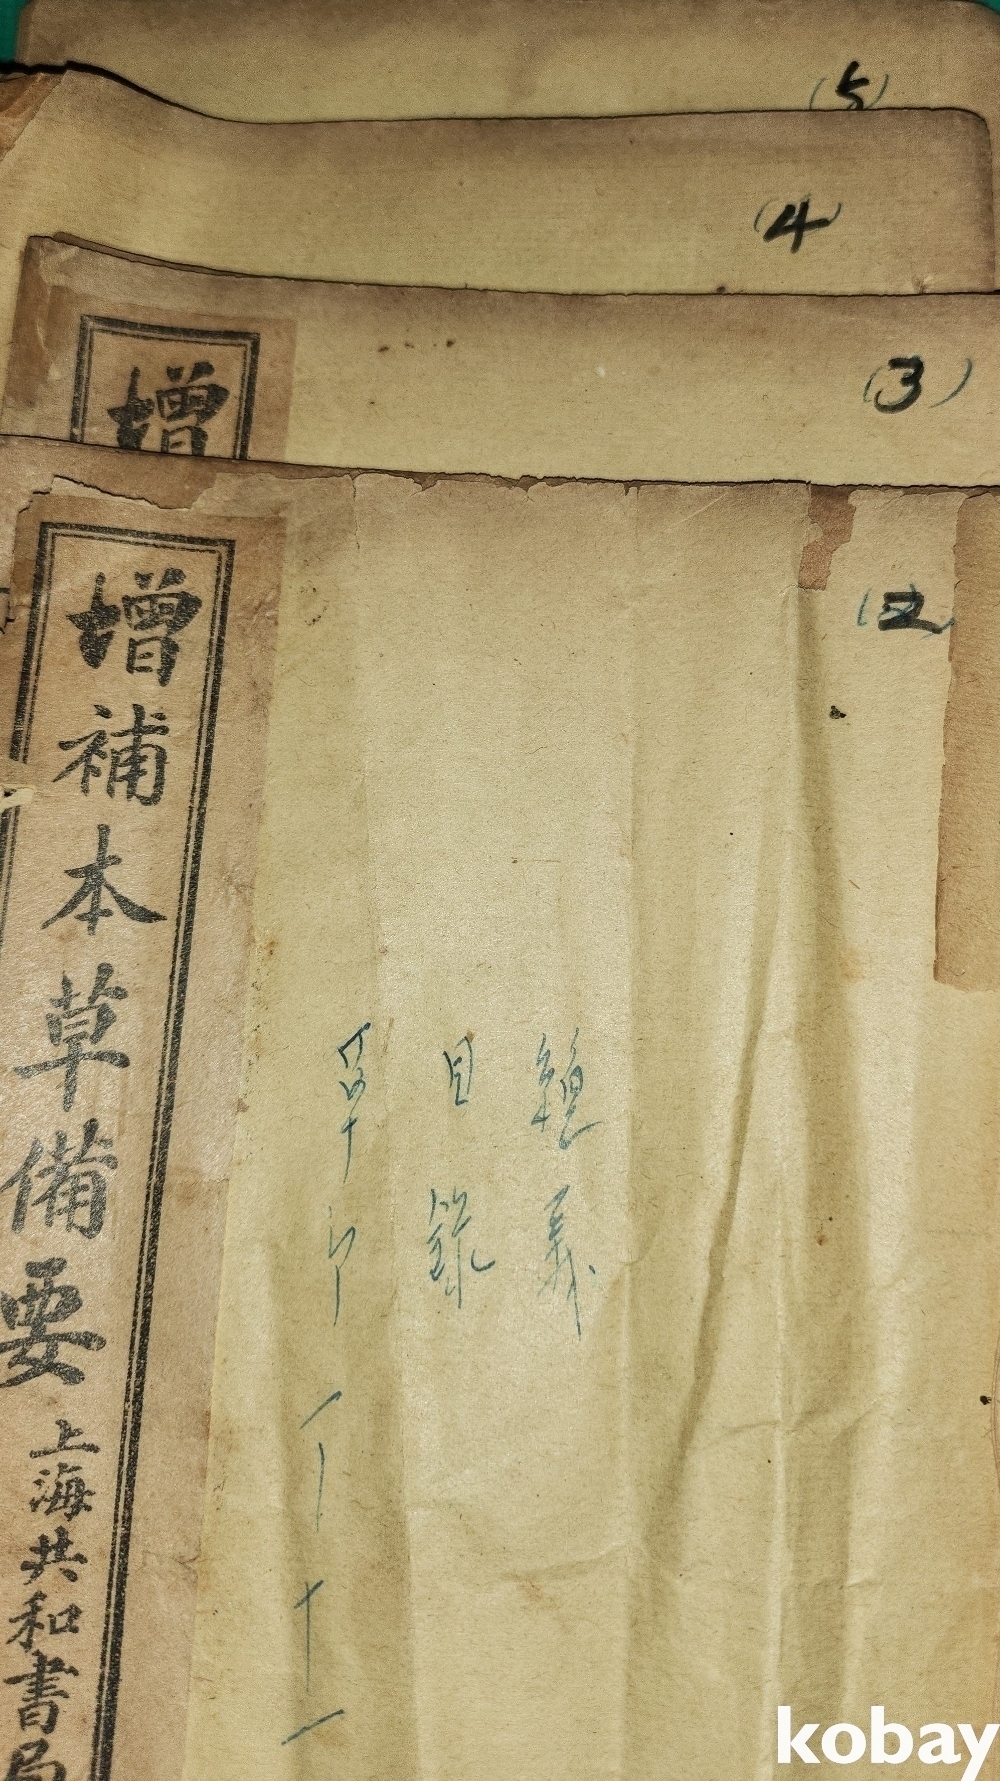 (5)
(4)
(3)
增
(2)
增補本草備要
上海共和書局
總義
目錄
草部
kobay